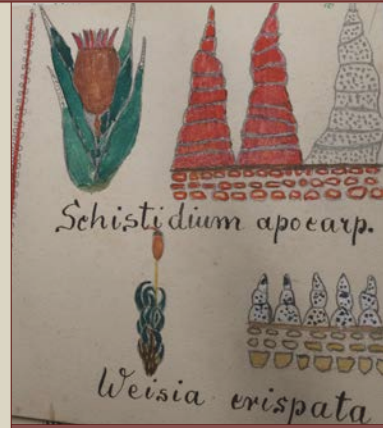 Schistidium apocarp.
Weisia crispata